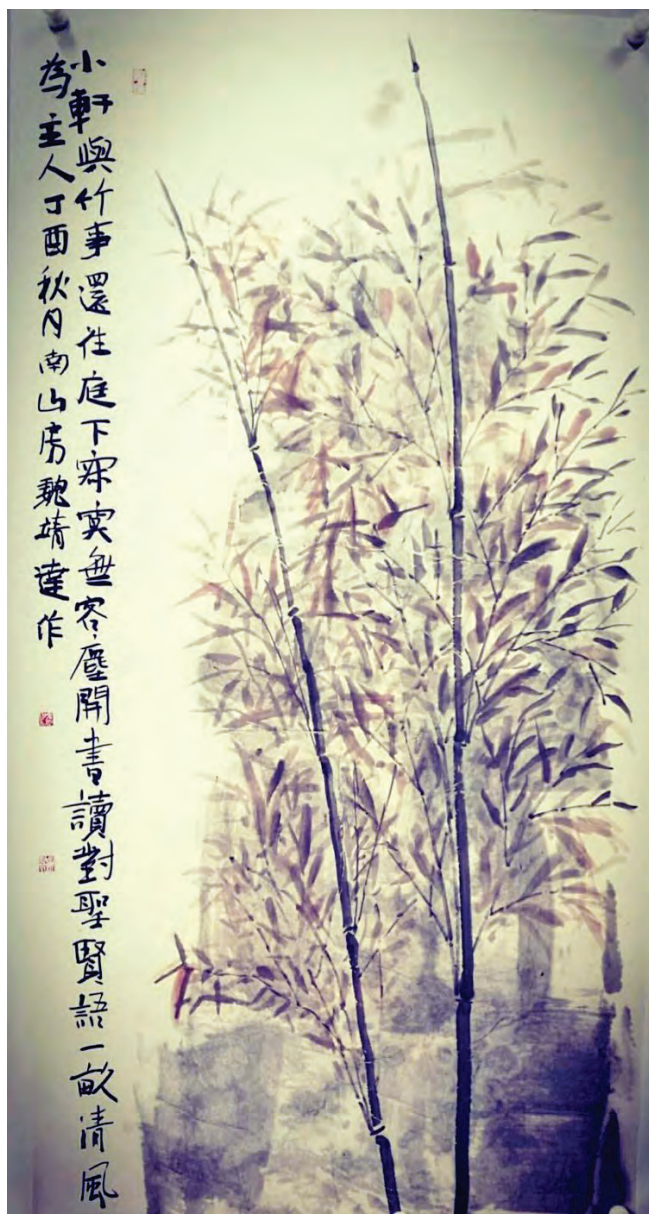 小軒與竹事還往庭下寂寞無容塵開書讀對聖賢語一畝清風
為主人丁酉秋月南山房魏靖達作